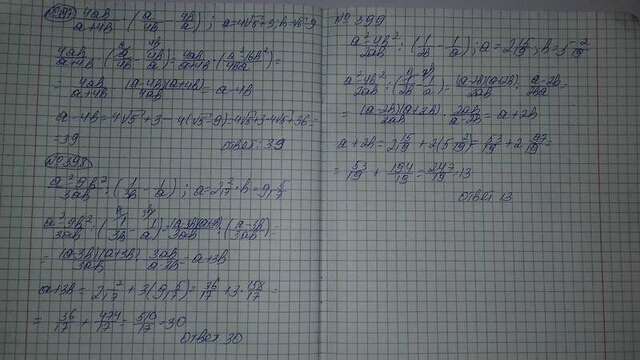 4ab/(a+4b) · (a/4b − 4b/a); a=4√5+3; b=√5−9
4ab/(a+4b) · (a/4b − 4b/a) = 4ab/(a+4b) · (a²−16b²/4ba) =
= 4ab/(a+4b) · (a−4b)(a+4b)/4ab = a−4b
a−4b = 4√5+3−4(√5−9)=4√5+3−4√5+36=
=39
Ответ: 39
№398
a²−9b²/3ab : (1/3b − 1/a); a=2 2/17 b=9 5/17
a²−9b²/3ab : (1/3b − 1/a) = (a−3b)(a+3b)/3ab : (a−3b/3ab) =
= (a−3b)(a+3b)/3ab · 3ab/a−3b = a+3b
a+3b = 2 2/17 + 3(9 5/17) = 36/17 + 3·158/17 =
= 36/17 + 474/17 = 510/17 = 30
Ответ 30
№399
a²−4b²/2ab : (1/2b − 1/a); a=2 15/19; b=5 2/19
a²−4b²/2ab : (1/2b − 1/a) = (a−2b)(a+2b)/2ab : a−2b/2ba =
= (a−2b)(a+2b)/2ab · 2ab/a−2b = a+2b
a+2b = 2 15/19 + 2(5 2/19) = 53/19 + 2 97/19 =
= 53/19 + 194/19 = 247/19 = 13
Ответ 13